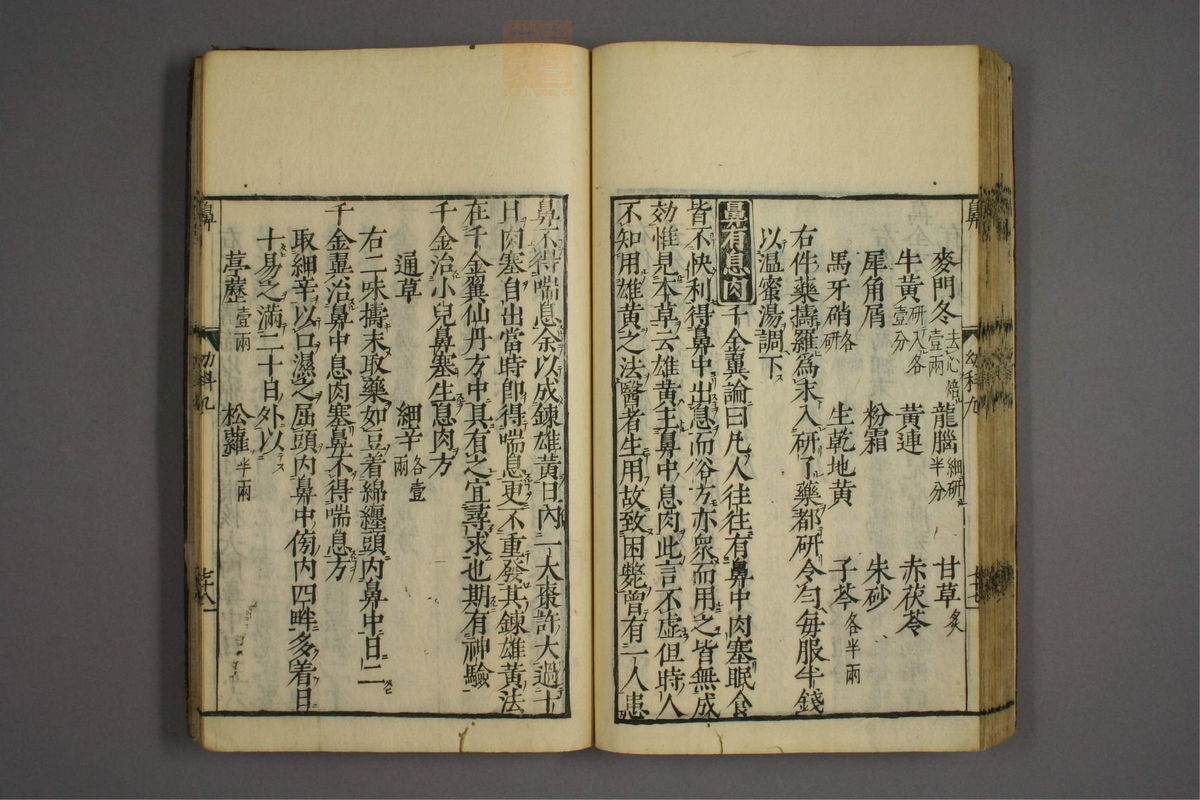 麥門冬去心焙壹兩 龍腦細研半分 甘草炙
牛黄研入各壹分 黄連 赤茯苓
犀角屑 粉霜 朱砂
馬牙硝各研 生乾地黄 子芩各半兩
右件藥擣羅爲末入研了藥都研令勻毎服半錢
以温蜜湯調下
鼻有息肉 千金翼論曰凡人往往有鼻中肉塞眠食
皆不快利得鼻中出息而俗方亦衆而用之皆無成
効惟見本草云雄黄主鼻中息肉此言不虚但時人
不知用雄黄之法醫者生用故致困斃曾有一人患
鼻不得喘息余以成鍊雄黄日内一大棗許大過十
日肉塞自出當時即得喘息更不重發其鍊雄黄法
在千金翼仙丹方中具有之宜尋求也期有神驗
千金治小兒鼻塞生息肉方
通草 細辛各壹兩
右二味擣末取藥如豆着綿纏頭内鼻中日二
千金翼治鼻中息肉塞鼻不得喘息方
取細辛以口濕之屈頭内鼻中傍内四畔多着日
十易之滿二十日外以
葶藶壹兩 松蘿半兩
鼻
幼科九